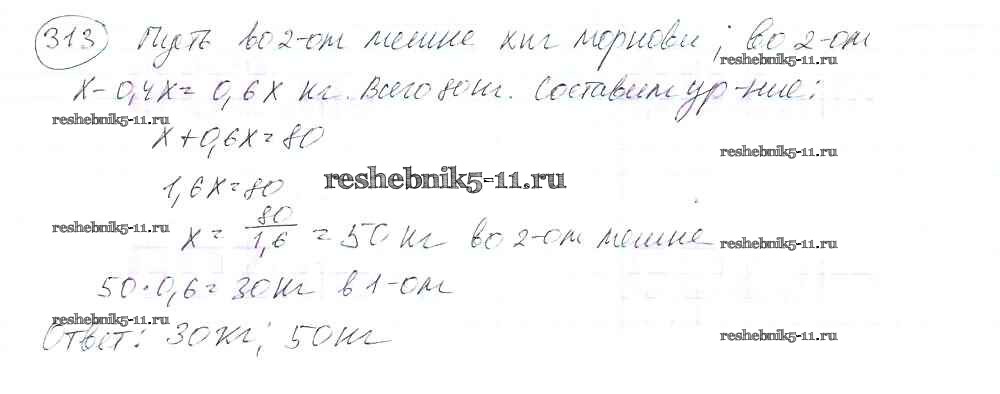 313 Пусть во 2-ом мешке x кг моркови; во 2-ом
reshebnik5-11.ru
x - 0,4x = 0,6x кг. Всего 80 кг. Составим ур-ние:
reshebnik5-11.ru
x + 0,6x = 80
reshebnik5-11.ru
1,6x = 80
reshebnik5-11.ru
x = 80/1,6 = 50 кг во 2-ом мешке
reshebnik5-11.ru
reshebnik5-11.ru
50·0,6 = 30 кг в 1-ом
reshebnik5-11.ru
Ответ: 30 кг; 50 кг
reshebnik5-11.ru